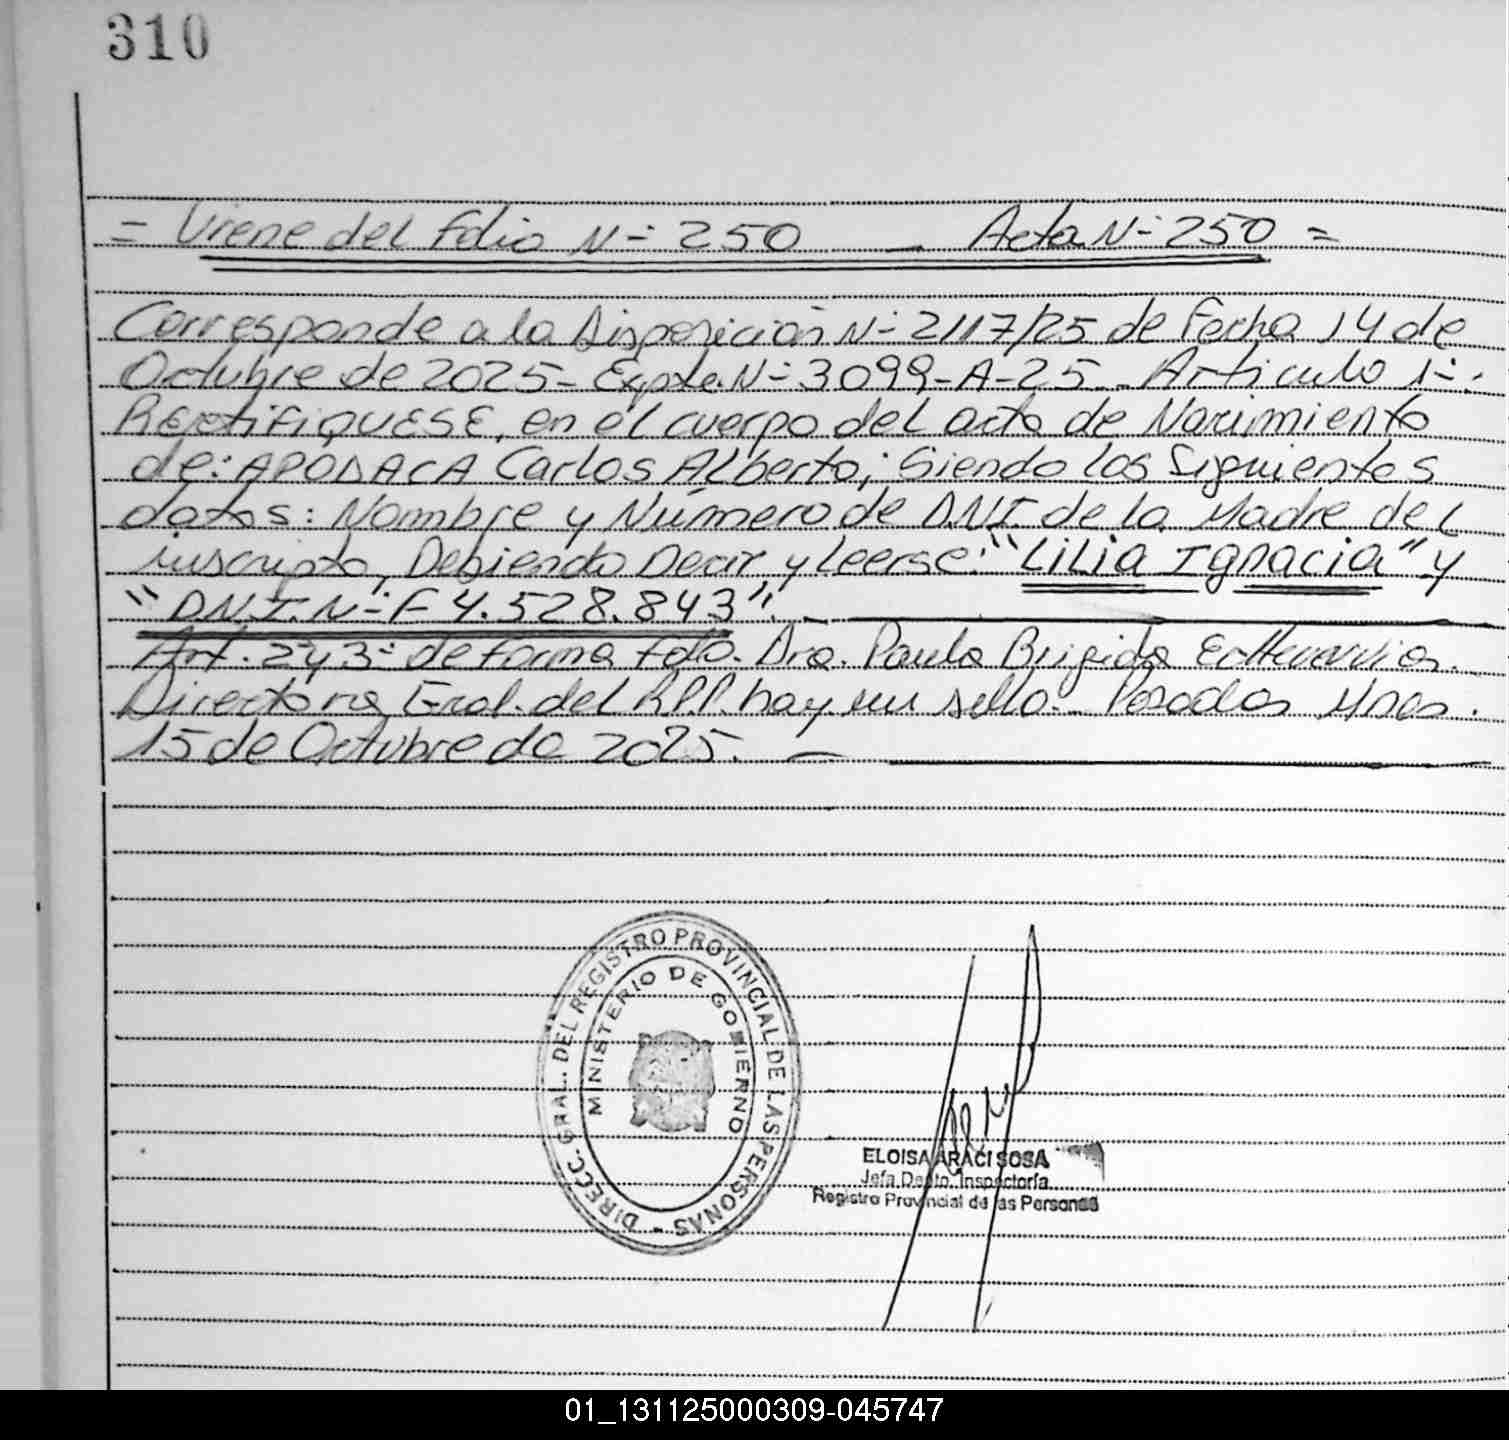 310
= Viene del Folio N° 250 _ Acta N° 250 =
Corresponde a la Disposición N° 2117/25 de Fecha 14 de
Octubre de 2025- Expte. N° 3099-A-25. Articulo 1°:
RECTIFIQUESE, en el cuerpo del acta de Nacimiento
de: APODACA Carlos Alberto; Siendo los Siguientes
datos: Nombre y Número de D.N.I. de la Madre del
inscripto, Debiendo Decir y Leerse: "LiLia IGnacia" y
"D.N.I. N° F 4.528.843".
Art. 2 y 3° de Forma Fdo. Dra. Paula Brigida Echeverria.
Directora Gral. del R.P.P. hay un sello. Posadas Mnes.
15 de Octubre de 2025.
DIRECC. GRAL. DEL REGISTRO PROVINCIAL DE LAS PERSONAS -
MINISTERIO DE GOBIERNO
ELOISA ARACI SOSA
Jefa Depto. Inspectoría
Registro Provincial de las Personas
01_131125000309-045747